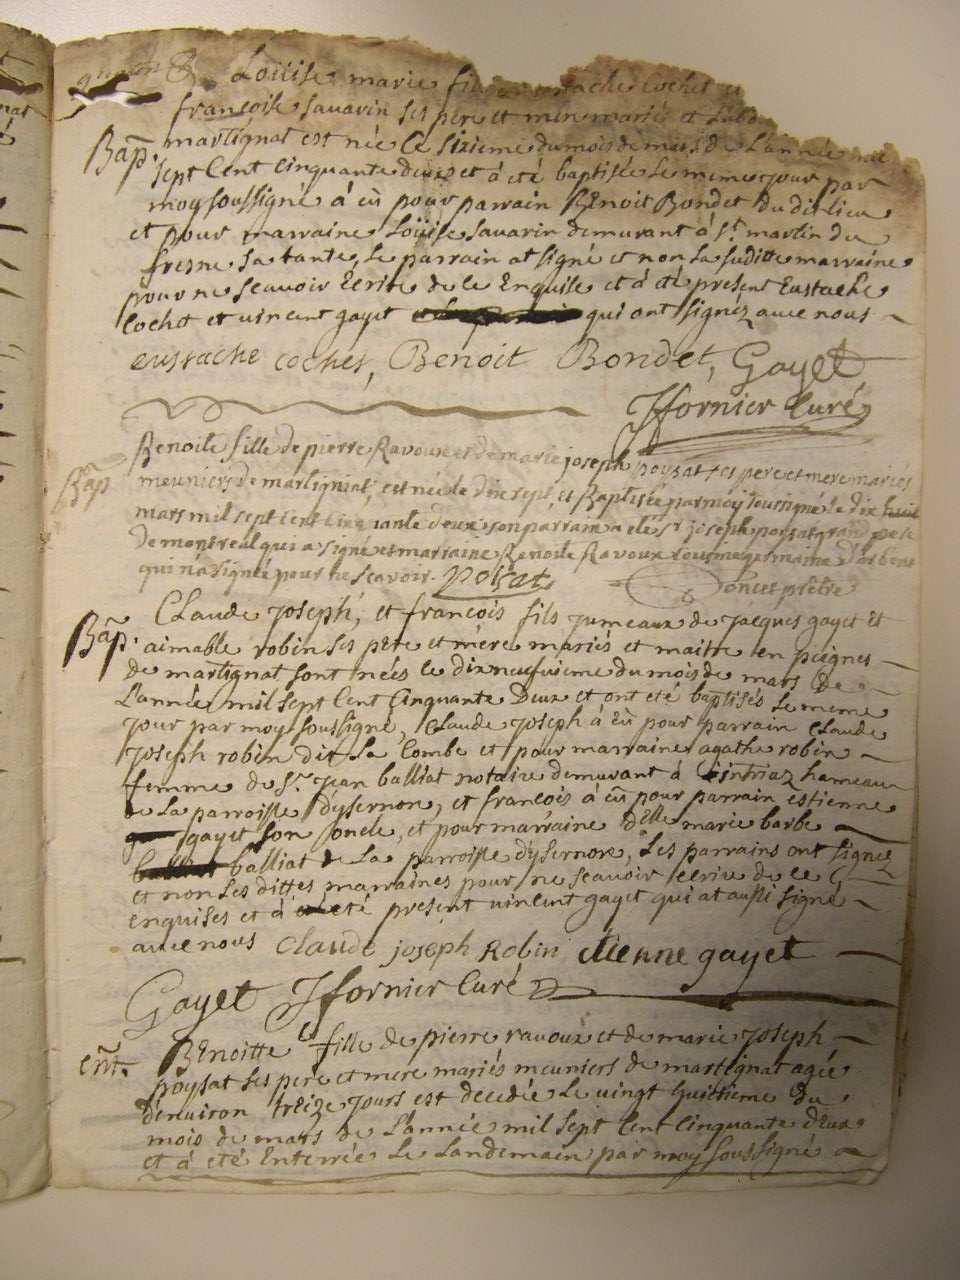 Loüise marie fil Eustache Cochet
françoise Savarin ses pere et mere mariés et Lab
Bap. martignat est née le sixieme du mois de mars de L'année mil
sept Cent Cinquante deux et à eté baptisée le meme jour par
moy soussigné à eû pour parrain Benoit Bondet du dit lieu
et pour marraine Loüise Savarin demurant à St. martin du
fresne sa tante, le parrain at signé et non la suditte marraine
pour ne scavoir Ecrire de ce Enquise et à eté present Eustache
Cochet et vincent gayet qui ont signéz avec nous
eustache coches, Benoit Bondet, Gayet
Jfornier Curé
Benoite fille de pierre Ravoux et de marie joseph poysat ses pere et mere mariés
Bap meuniers de martigniat, est née le dix sept, et Baptisée par moy soussigné le dix huit
mars mil sept cent cinquante deux son parrain a été sr. joseph poysat grand pere
de montreal qui a signé et marraine Benoite Ravoux cousine germaine
qui n'a signée pour ne scavoir. Poisat Doncet prêtre
Claude Joseph, et françois fils jumeaux de jacques gayet et
Bap. aimable robin ses pere et mere mariés et maitre en peignes
de martignat sont nées le dixneufvieme du mois de mars de
L'année mil sept Cent Cinquante Deux et ont eté baptisés le meme
jour par moy soussigné, Claude joseph à eû pour parrain Claude
joseph robin dit la Combe et pour marraine agathe robin
femme de Sr. jean balliat notaire demurant à intriaz hameau
de la parroisse d'ysernore, et francois à eû pour parrain estienne
gayet son oncle, et pour marraine delle marie barbe
balliat de la parroisse d'ysernore, les parrains ont signez
et non les dittes marraines pour ne scavoir ecrire de ce
enquises et à eté present vincent gayet qui at aussi signé
avec nous Claude joseph Robin étienne gayet
Gayet Jfornier Curé
Ent. Benoitte fille de pierre ravoux et de marie Joseph
poysat ses pere et mere mariés meuniers de martignat agée
d'environ treize jours est decedée le vingt huittieme du
mois de mars de L'année mil sept Cent Cinquante deux
et à eté Enterrée le Landemain par moy soussigné